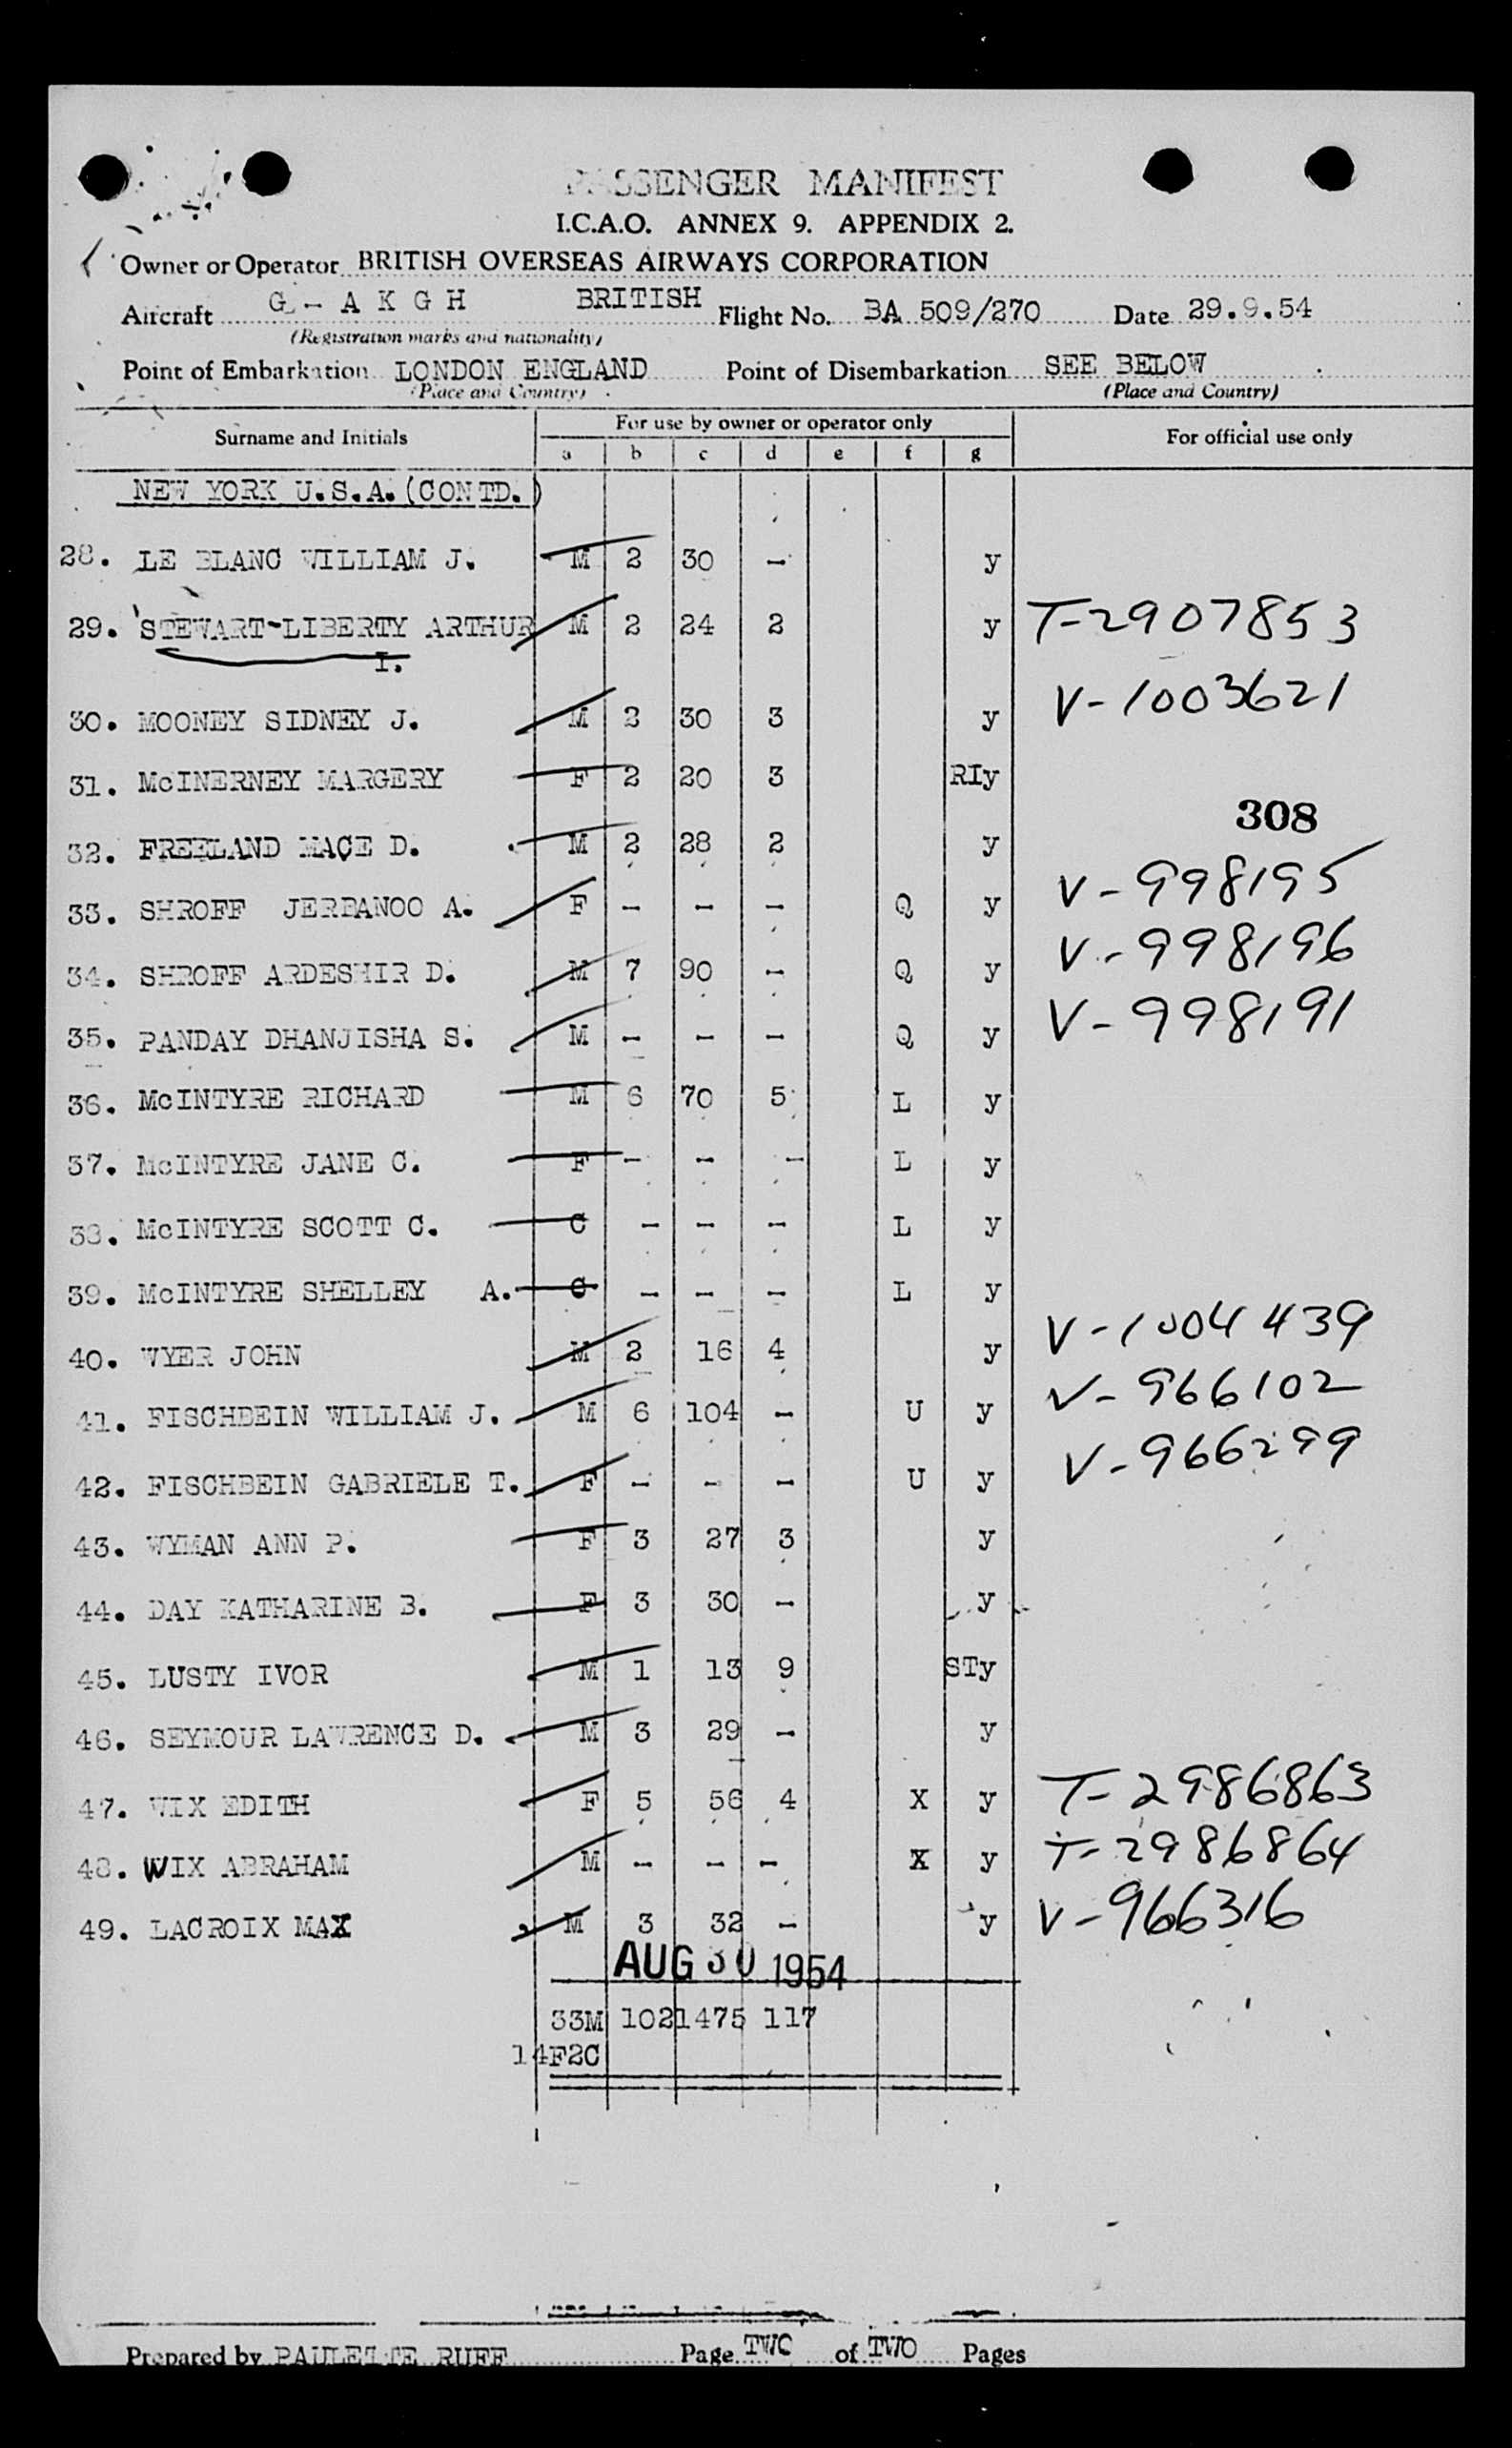 PASSENGER MANIFEST
I.C.A.O. ANNEX 9. APPENDIX 2.
Owner or Operator BRITISH OVERSEAS AIRWAYS CORPORATION
Aircraft G - A K G H BRITISH Flight No. BA 509/270 Date 29.9.54
(Registration marks and nationality)
Point of Embarkation LONDON ENGLAND Point of Disembarkation SEE BELOW
(Place and Country) (Place and Country)
Surname and Initials For use by owner or operator only For official use only
a b c d e f g
NEW YORK U.S.A. (CONTD.)
28. LE BLANC WILLIAM J. M 2 30 - y
29. STEWART-LIBERTY ARTHUR M 2 24 2 y T-2907853
I.
30. MOONEY SIDNEY J. M 2 30 3 y V-1003621
31. McINERNEY MARGERY F 2 20 3 RIy
308
32. FREELAND MACE D. M 2 28 2 y
33. SHROFF JERBANOO A. F - - - Q y V-998195
34. SHROFF ARDESHIR D. M 7 90 - Q y V-998196
35. PANDAY DHANJISHA S. M - - - Q y V-998191
36. McINTYRE RICHARD M 6 70 5 L y
37. McINTYRE JANE C. F - - - L y
38. McINTYRE SCOTT C. C - - - L y
39. McINTYRE SHELLEY A. C - - - L y
40. WYER JOHN M 2 16 4 y V-1004439
41. FISCHBEIN WILLIAM J. M 6 104 - U y V-966102
42. FISCHBEIN GABRIELE T. F - - - U y V-966299
43. WYMAN ANN P. F 3 27 3 y
44. DAY KATHARINE B. F 3 30 - y
45. LUSTY IVOR M 1 13 9 STy
46. SEYMOUR LAWRENCE D. M 3 29 - y
47. WIX EDITH F 5 56 4 X y T-2986863
48. WIX ABRAHAM M - - - X y T-2986864
49. LACROIX MAX M 3 32 - y V-966316
AUG 30 1954
33M 102 1475 117
14F2C
Prepared by PAULETTE RUFF Page TWO of TWO Pages